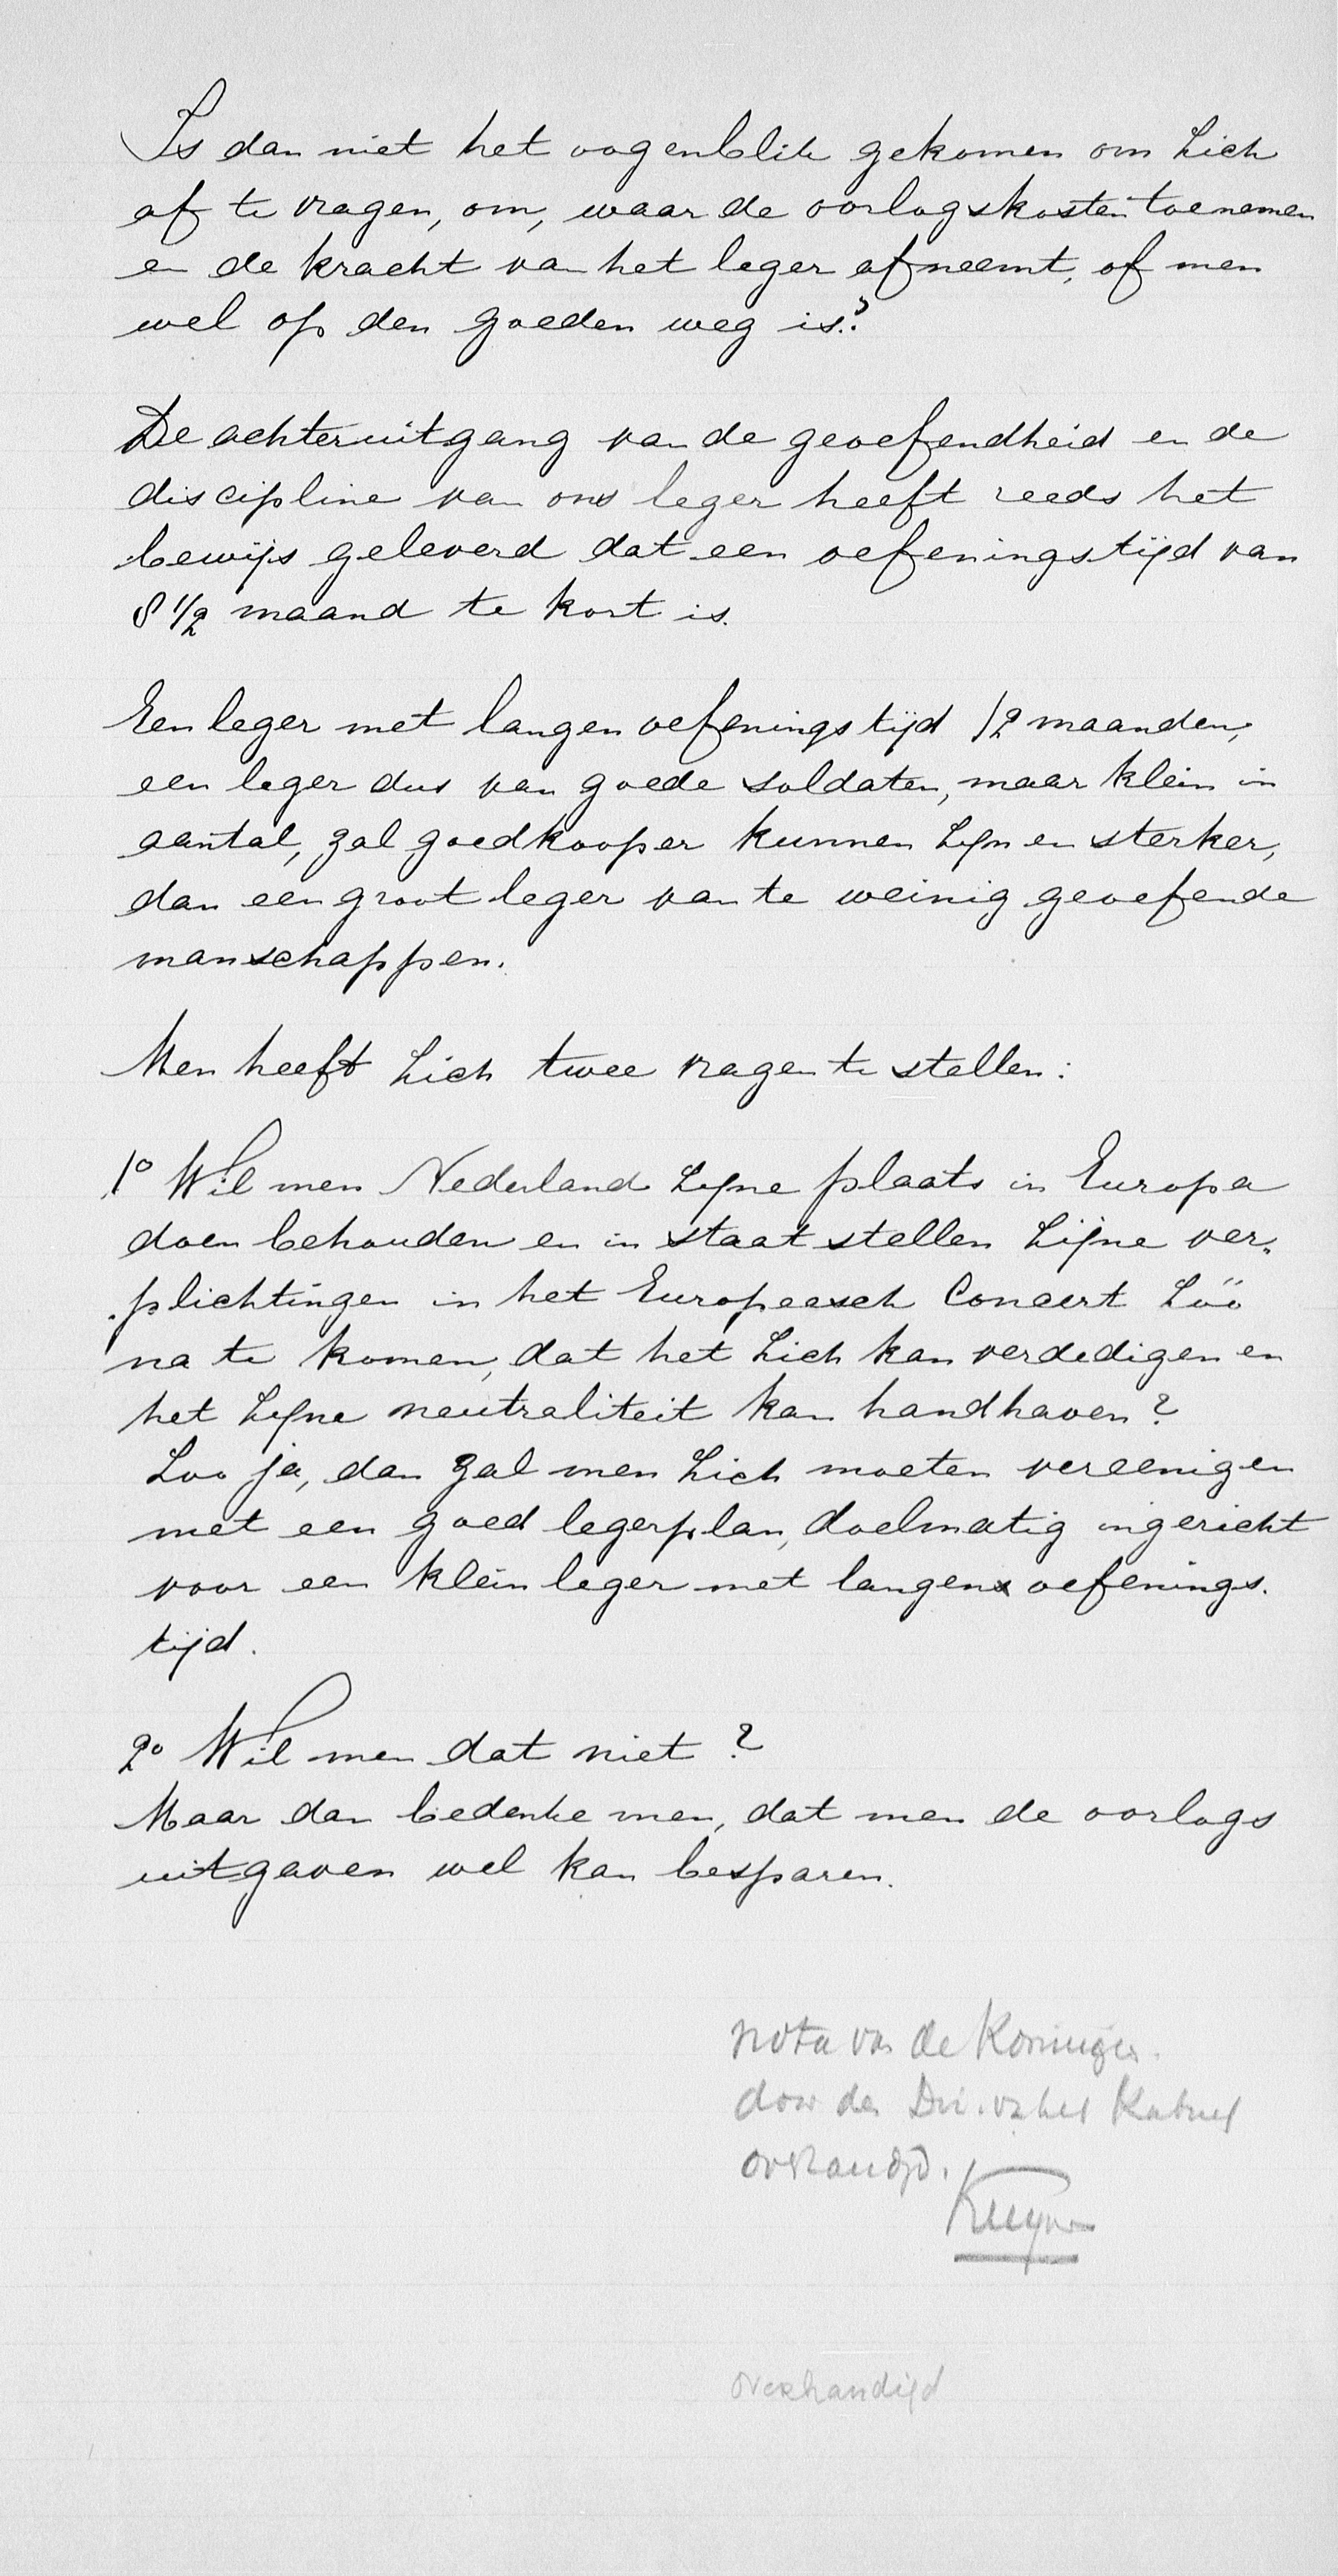 Is dan niet het oogenblik gekomen om zich
af te vragen, om, waar de oorlogskosten toenemen
en de kracht van het leger afneemt, of men
wel op den goeden weg is?
De achteruitgang van de geoefendheid en de
discipline van ons leger heeft reeds het
bewijs geleverd dat een oefeningstijd van
8 1/2 maand te kort is.
Een leger met langen oefeningstijd 12 maanden,
een leger dus van goede soldaten, maar klein in
aantal, zal goedkooper kunnen zijn en sterker,
dan een groot leger van te weinig geoefende
manschappen.
Men heeft zich twee vragen te stellen:
1o Wil men Nederland zijne plaats in Europa
doen behouden en in staat stellen zijne ver-
plichtingen in het Europeesch Concert zóó
na te komen, dat het zich kan verdedigen en
het zijne neutraliteit kan handhaven?
Zoo ja, dan zal men zich moeten vereenigen
met een goed legerplan, doelmatig ingericht
voor een klein leger met langen oefenings-
tijd.
2o Wil men dat niet?
Maar dan bedenke men, dat men de oorlogs
uitgaven wel kan besparen.
nota van de Koningin
door den Dir. van het Kabinet
overhandigd.
Kuyper
overhandigd